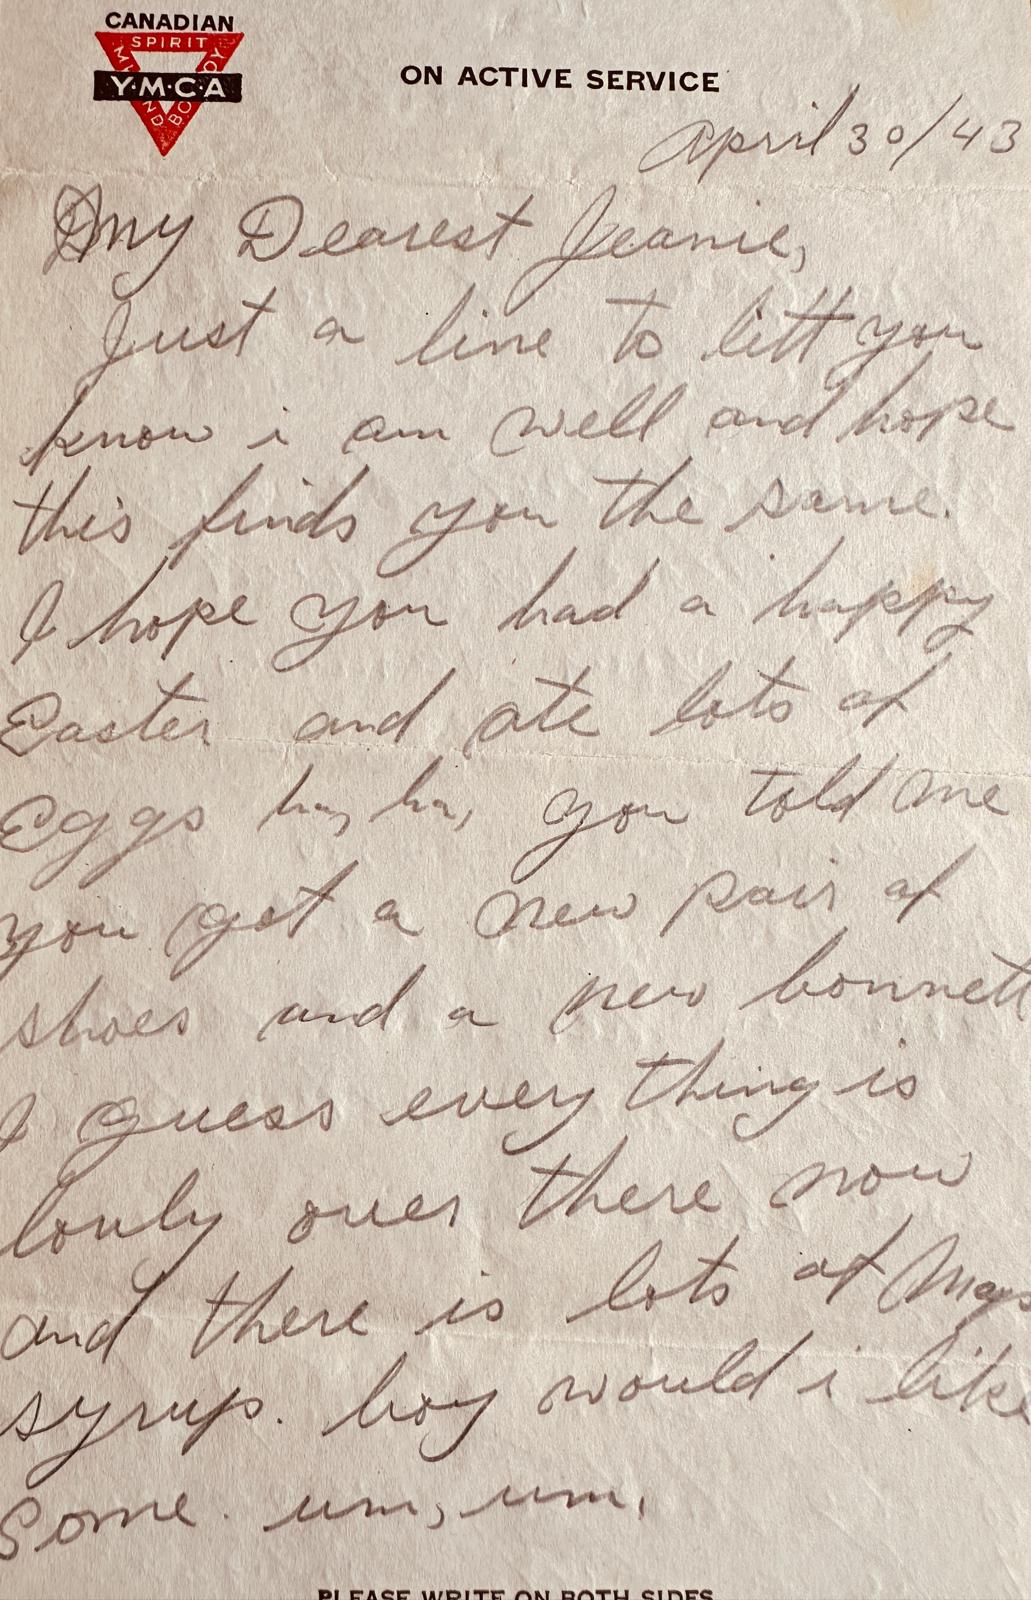 CANADIAN
SPIRIT
MIND
BODY
Y·M·C·A
ON ACTIVE SERVICE
April 30/43
My Dearest Jeanie,
Just a line to lett you
know i am well and hope
this finds you the same.
I hope you had a happy
Easter and ate lots of
Eggs ha, ha, you told me
you got a new pair of
shoes and a new bonnett
I guess every thing is
lovly over there now
and there is lots of
syrup. boy would i like
some. um, um,
PLEASE WRITE ON BOTH SIDES